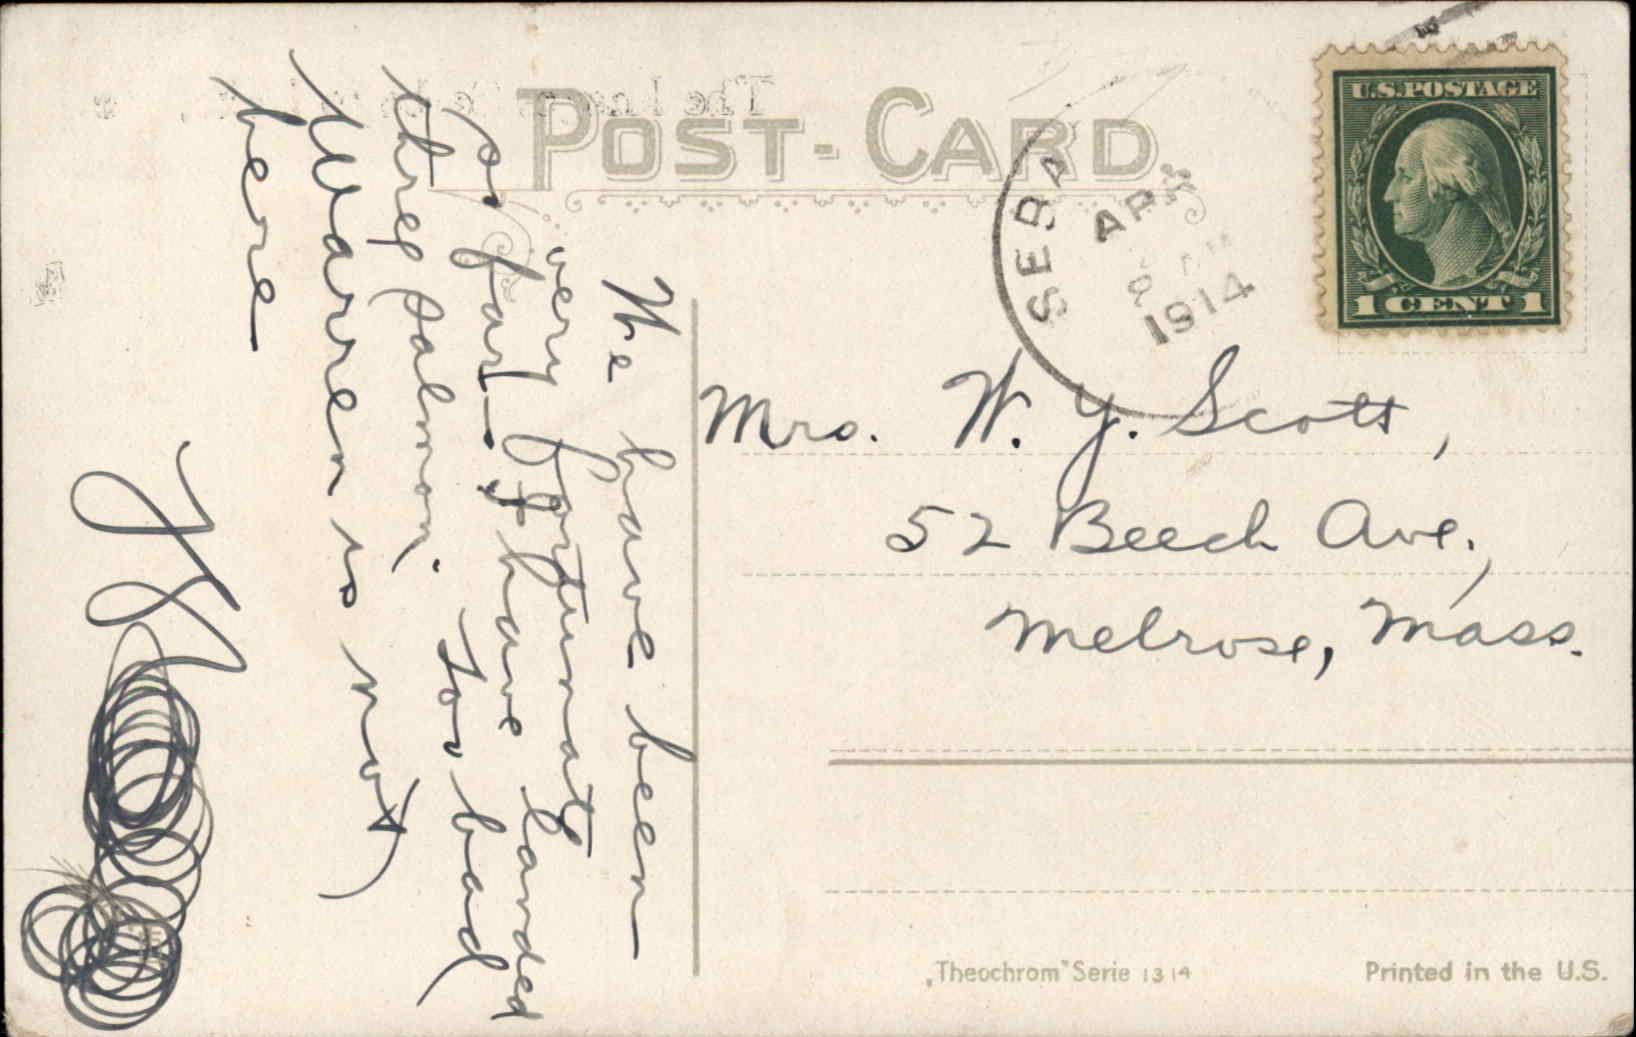 POST-CARD
SEBA
APR
1914
U.S.POSTAGE
1 CENT 1
We have been
very fortunate
so far - I have landed
three salmon. Too bad
Warren is not
here
Mrs. W. Y. Scott,
52 Beech Ave.,
Melrose, Mass.
„Theochrom" Serie 1314
Printed in the U.S.